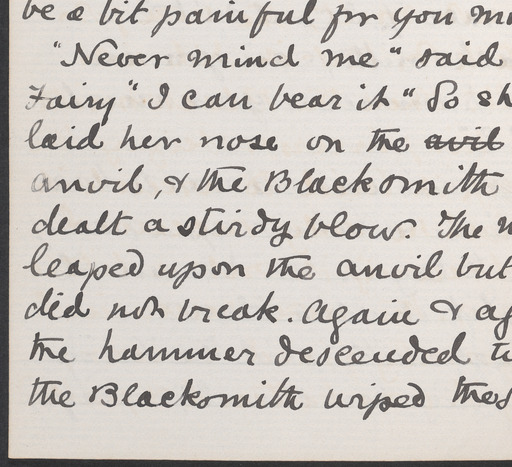 be a bit painful for you
"Never mind me" said
Fairy "I can bear it" So sh
laid her nose on the avil
anvil, & the Blacksmith
dealt a sturdy blow. The
leaped upon the anvil but
did not break. Again & ag
the hammer descended
the Blacksmith wiped